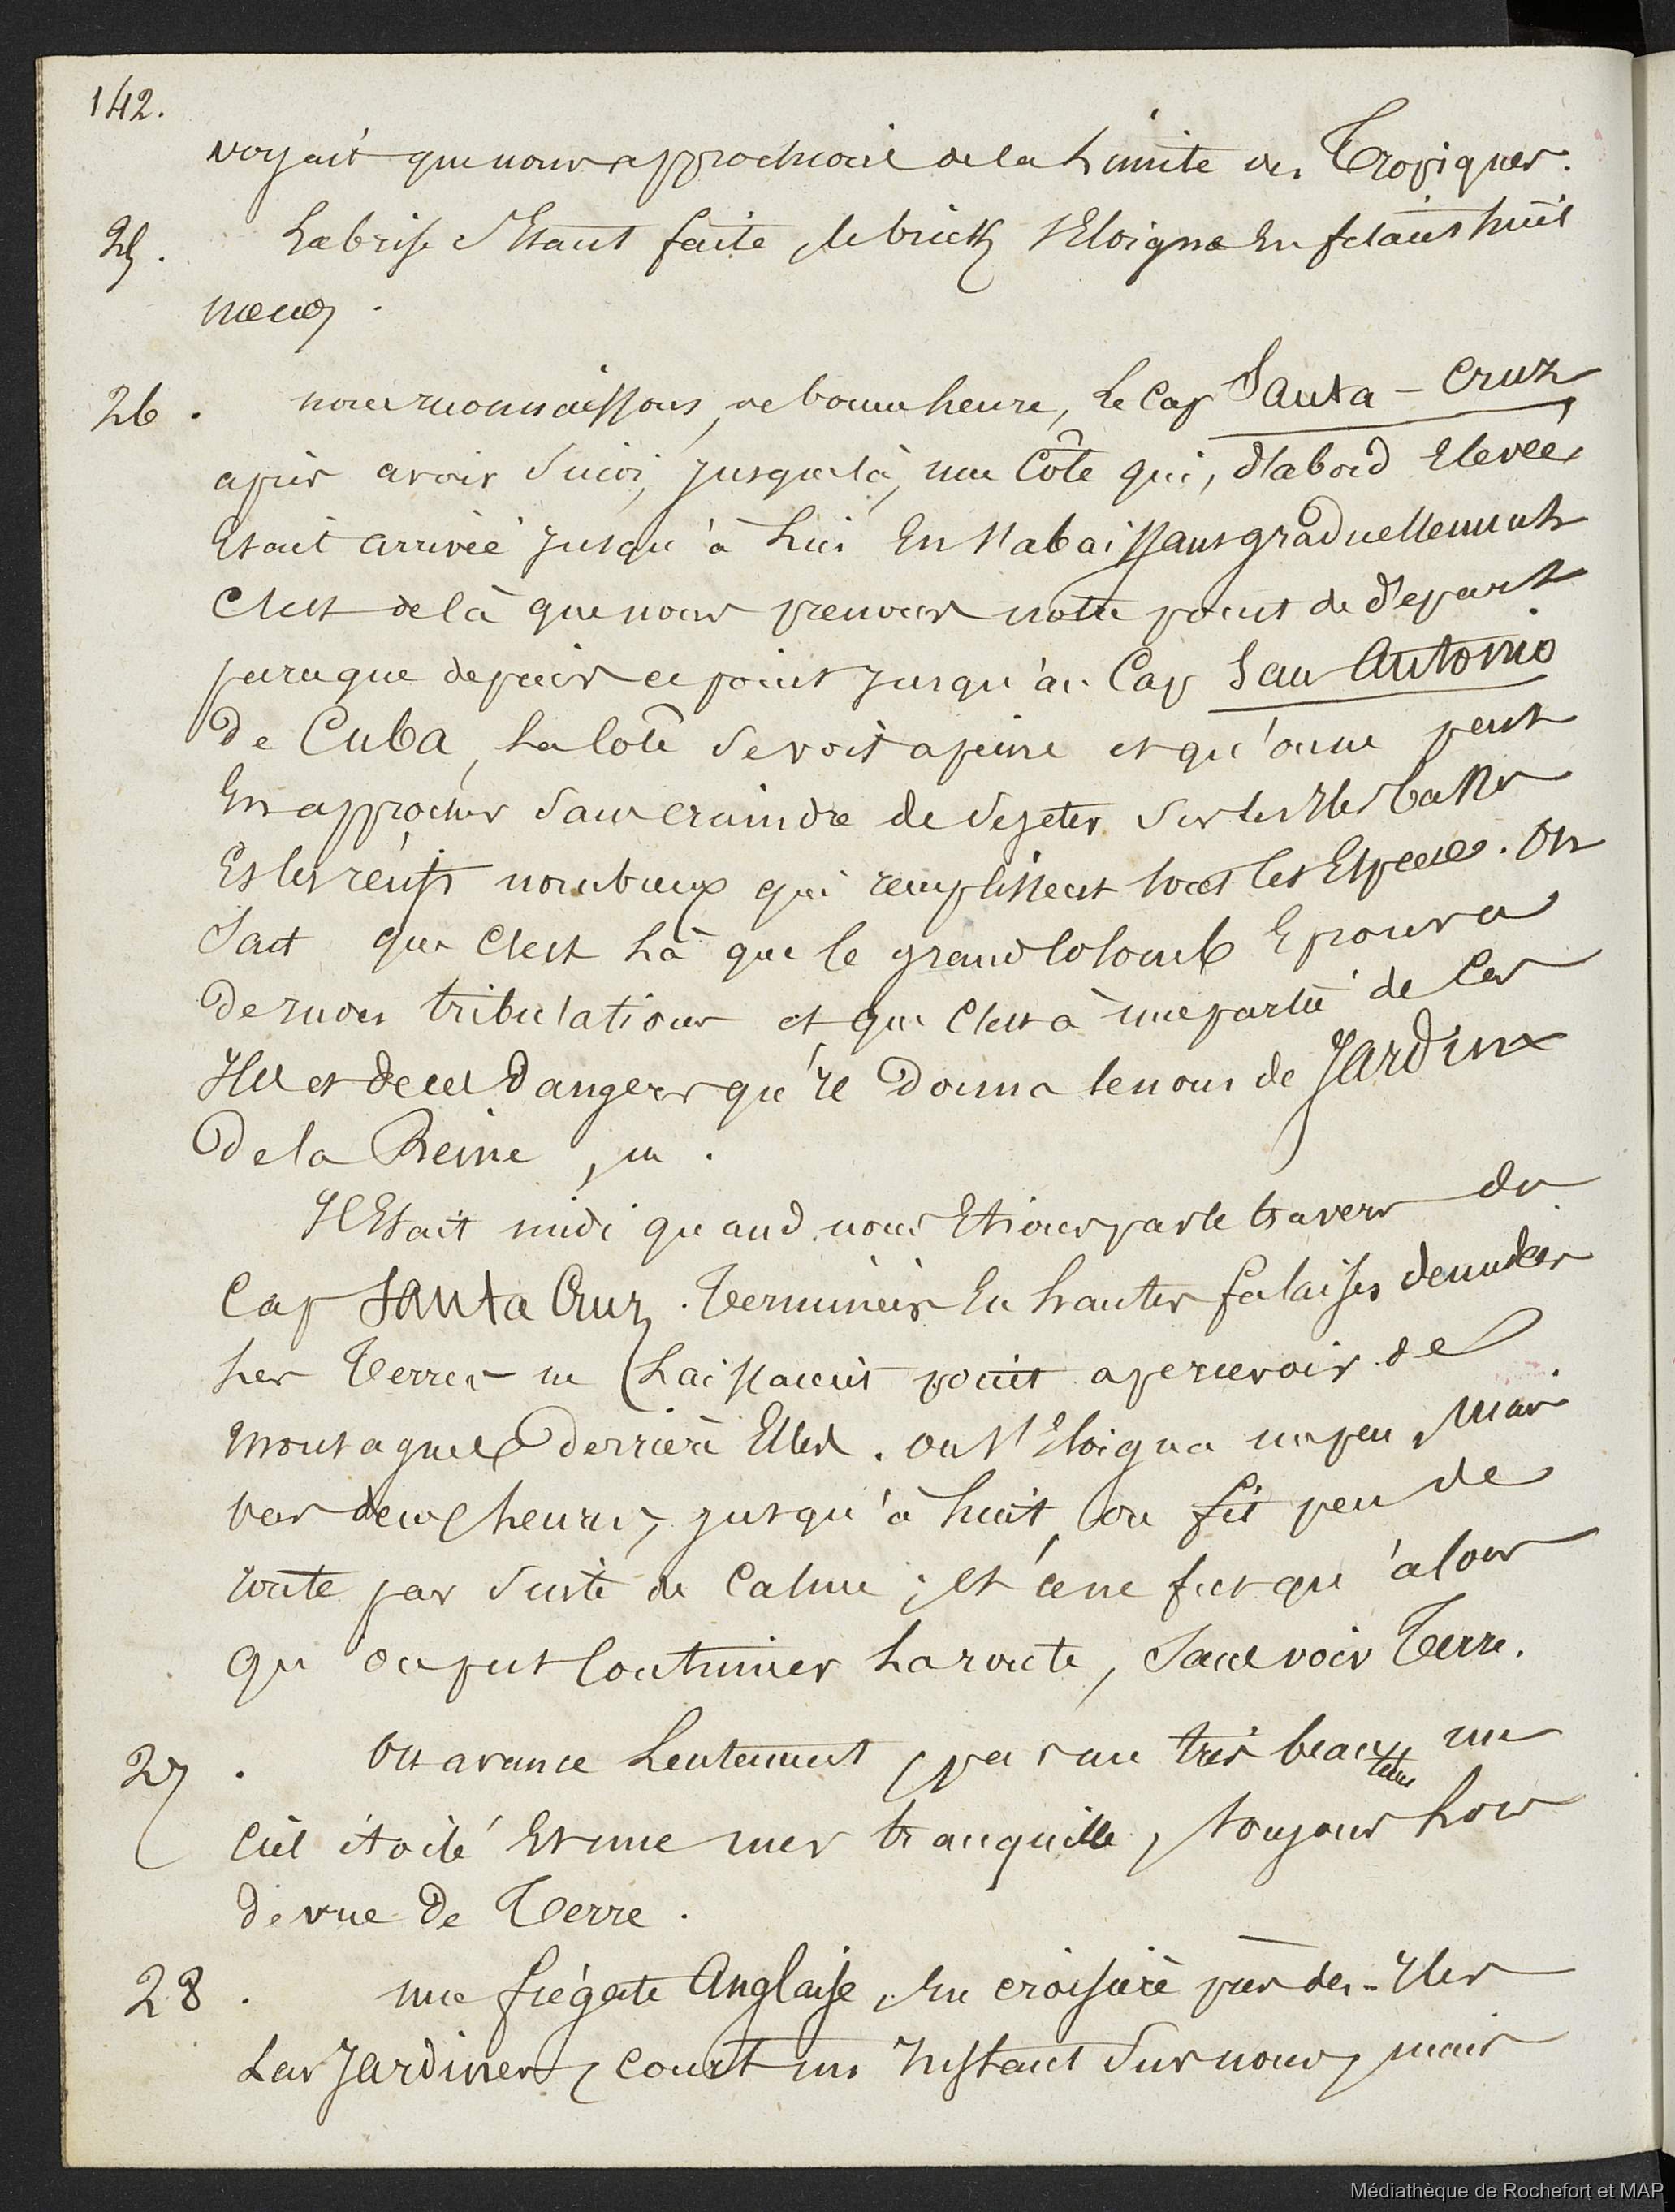 142.
voyait que nous approchions de la Limite des Tropiques.
25. La brise s'Etant faite, le brick s'Eloigna En filant huit
nœuds.
26. nous reconnaissons, de bonne heure, Le Cap Santa-Cruz,
après avoir suivi, jusque là, une Côte qui, d'abord Elevée,
Etait arrivée jusqu'à Lui En s'abaissant graduellement
C'est de là que nous prenons notre point de départ
parce que depuis ce point jusqu'au Cap San Antonio
De Cuba, La Côte se voit à peine et qu'on ne peut
En approcher sans craindre de se jeter sur les Iles basses
Et les récifs nombreux qui remplissent tous les Espaces. On
Sait que C'est Là que le grand Colomb Eprouva
De rudes tribulations et que C'est à une partie de Ces
Iles et de ces Dangers qu'il Donna le nom de Jardins
De la Reine,
Il Etait midi quand nous Etions par le travers du
Cap Santa Cruz. Terminées En hautes falaises denudées
Les Terres ne Laissaient point apercevoir de
Montagnes Derrière Elles. On s'Eloigna un peu, Mais
vers deux heures, jusqu'à huit, on fit peu de
route par suite du Calme; et ce ne fut qu'alors
qu'on put Continuer La route, sans voir Terre.
27. On avance Lentement, par un très beau tems, un
Ciel étoilé Et une mer tranquille, toujours hors
de vue De Terre.
28. une frégate Anglaise, En croisière près des Iles
Las Jardines, court un Instant sur nous, mais
Médiathèque de Rochefort et MAP